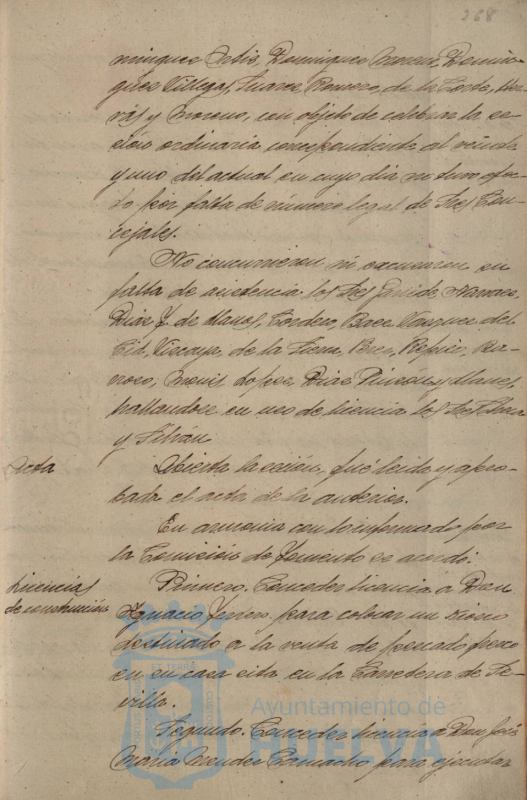 368
minguez Ortiz, Dominguez Moreno, Domin-
guez Villegas, Suarez Romero, de la Corte,
y Moreno, con objeto de celebrar la se-
sión ordinaria correspondiente al veinte
y uno del actual en cuyo dia no tuvo efec-
to por falta de número legal de Sres Con-
cejales.
No concurrieron ni excusaron su
falta de asistencia los Sres Garrido
Diaz de Llanos, Cordero, Baez Vazquez del
Cid, Vizcaya, de la Sierra,
Lopez, Diaz Pinzón y
hallandose en uso de licencia los Sres
y Silván
Acta
Abierta la sesión, fué leida y apro-
bada el acta de la anterior.
En armonia con lo informado por
la Comisión de Fomento se acordó:
Licencias
de construcción
Primero. Conceder licencia á Don
Ignacio para colocar un
destinado a la venta de pescado fresco
en su casa sita en la Carretera de Se-
villa.
Segundo. Conceder licencia á Don José
Maria Mendez Camacho para ejecutar
Ayuntamiento de
HUELVA